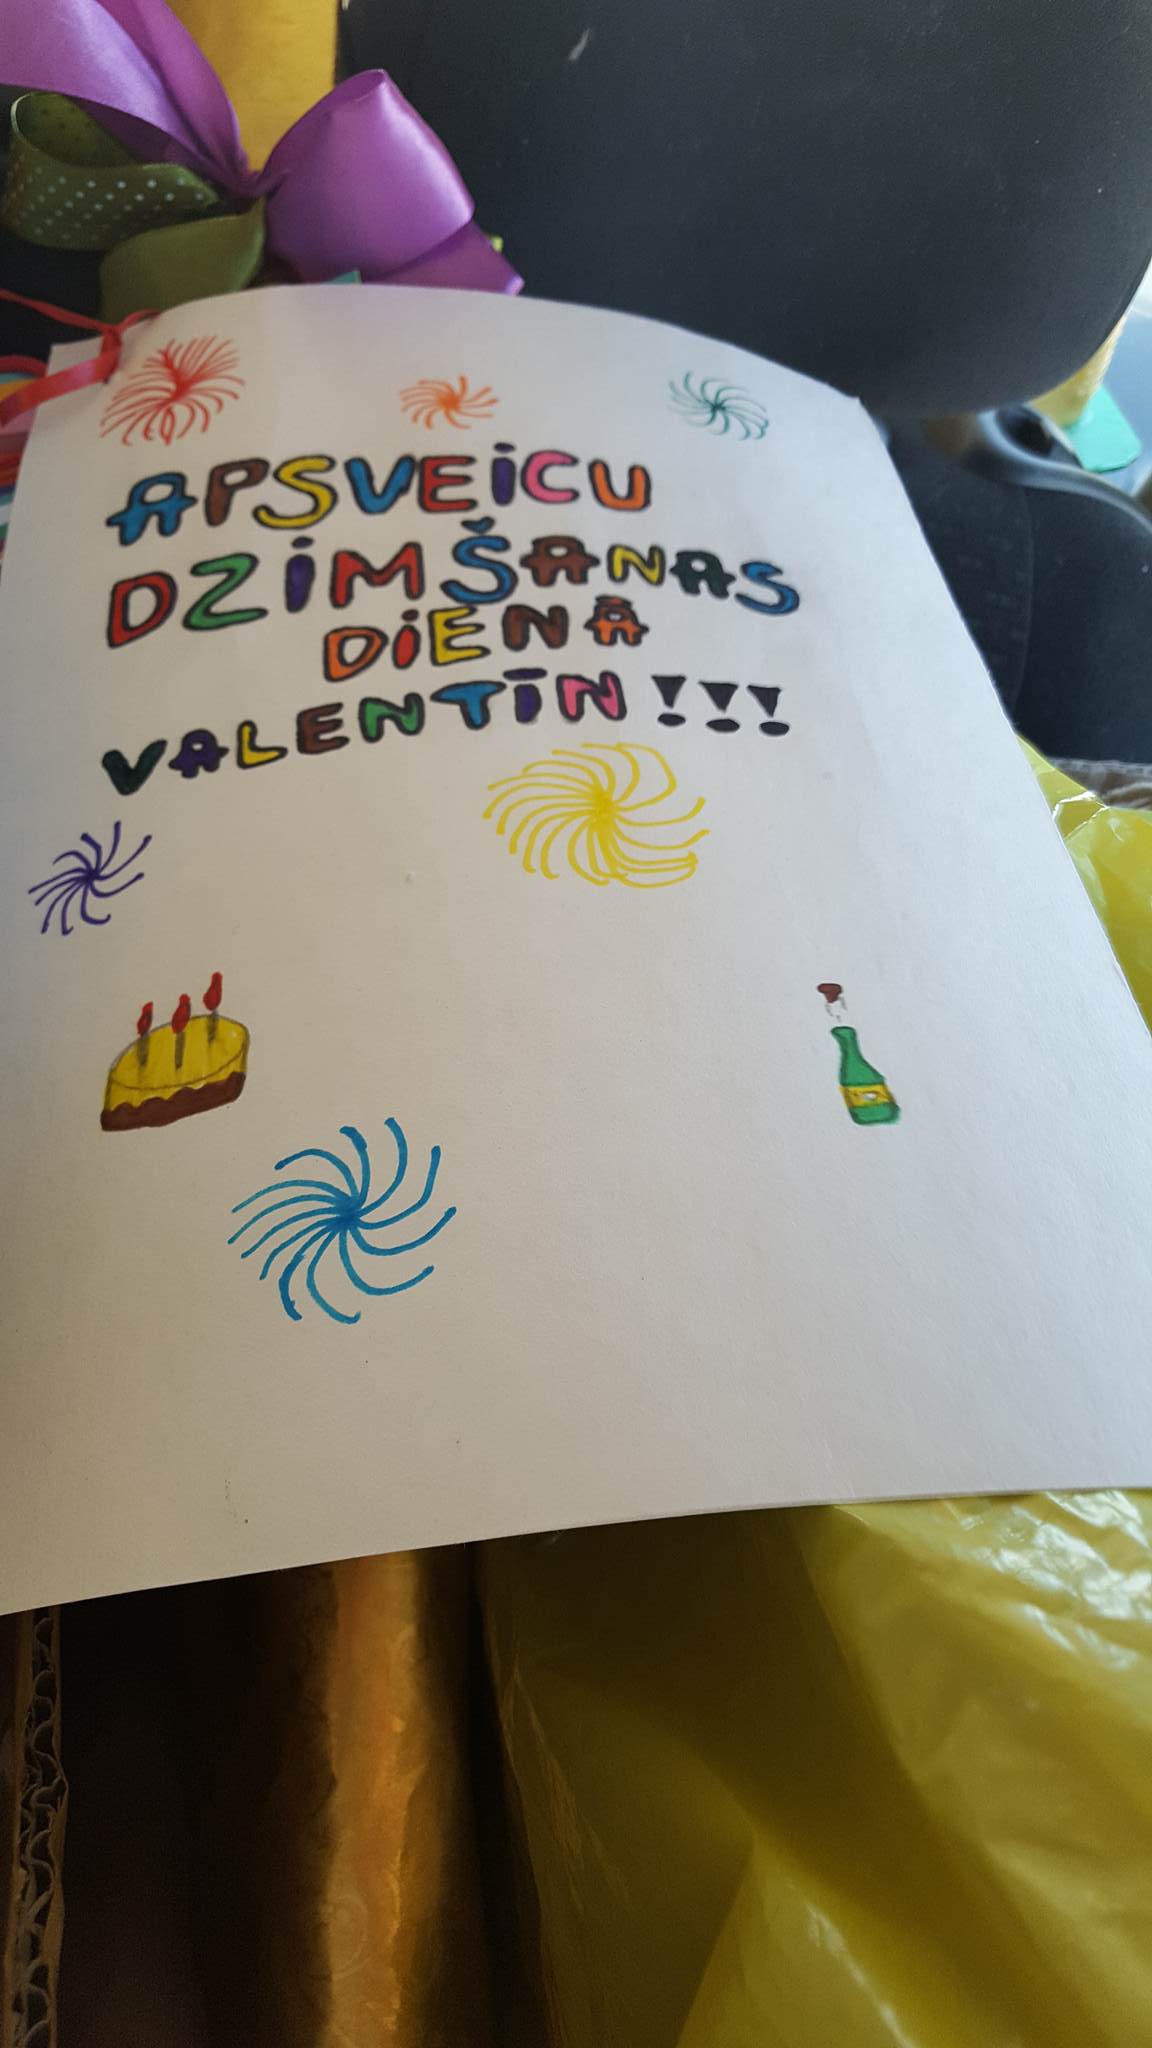 APSVEICU
DZIMŠANAS
DIENĀ
VALENTĪN!!!